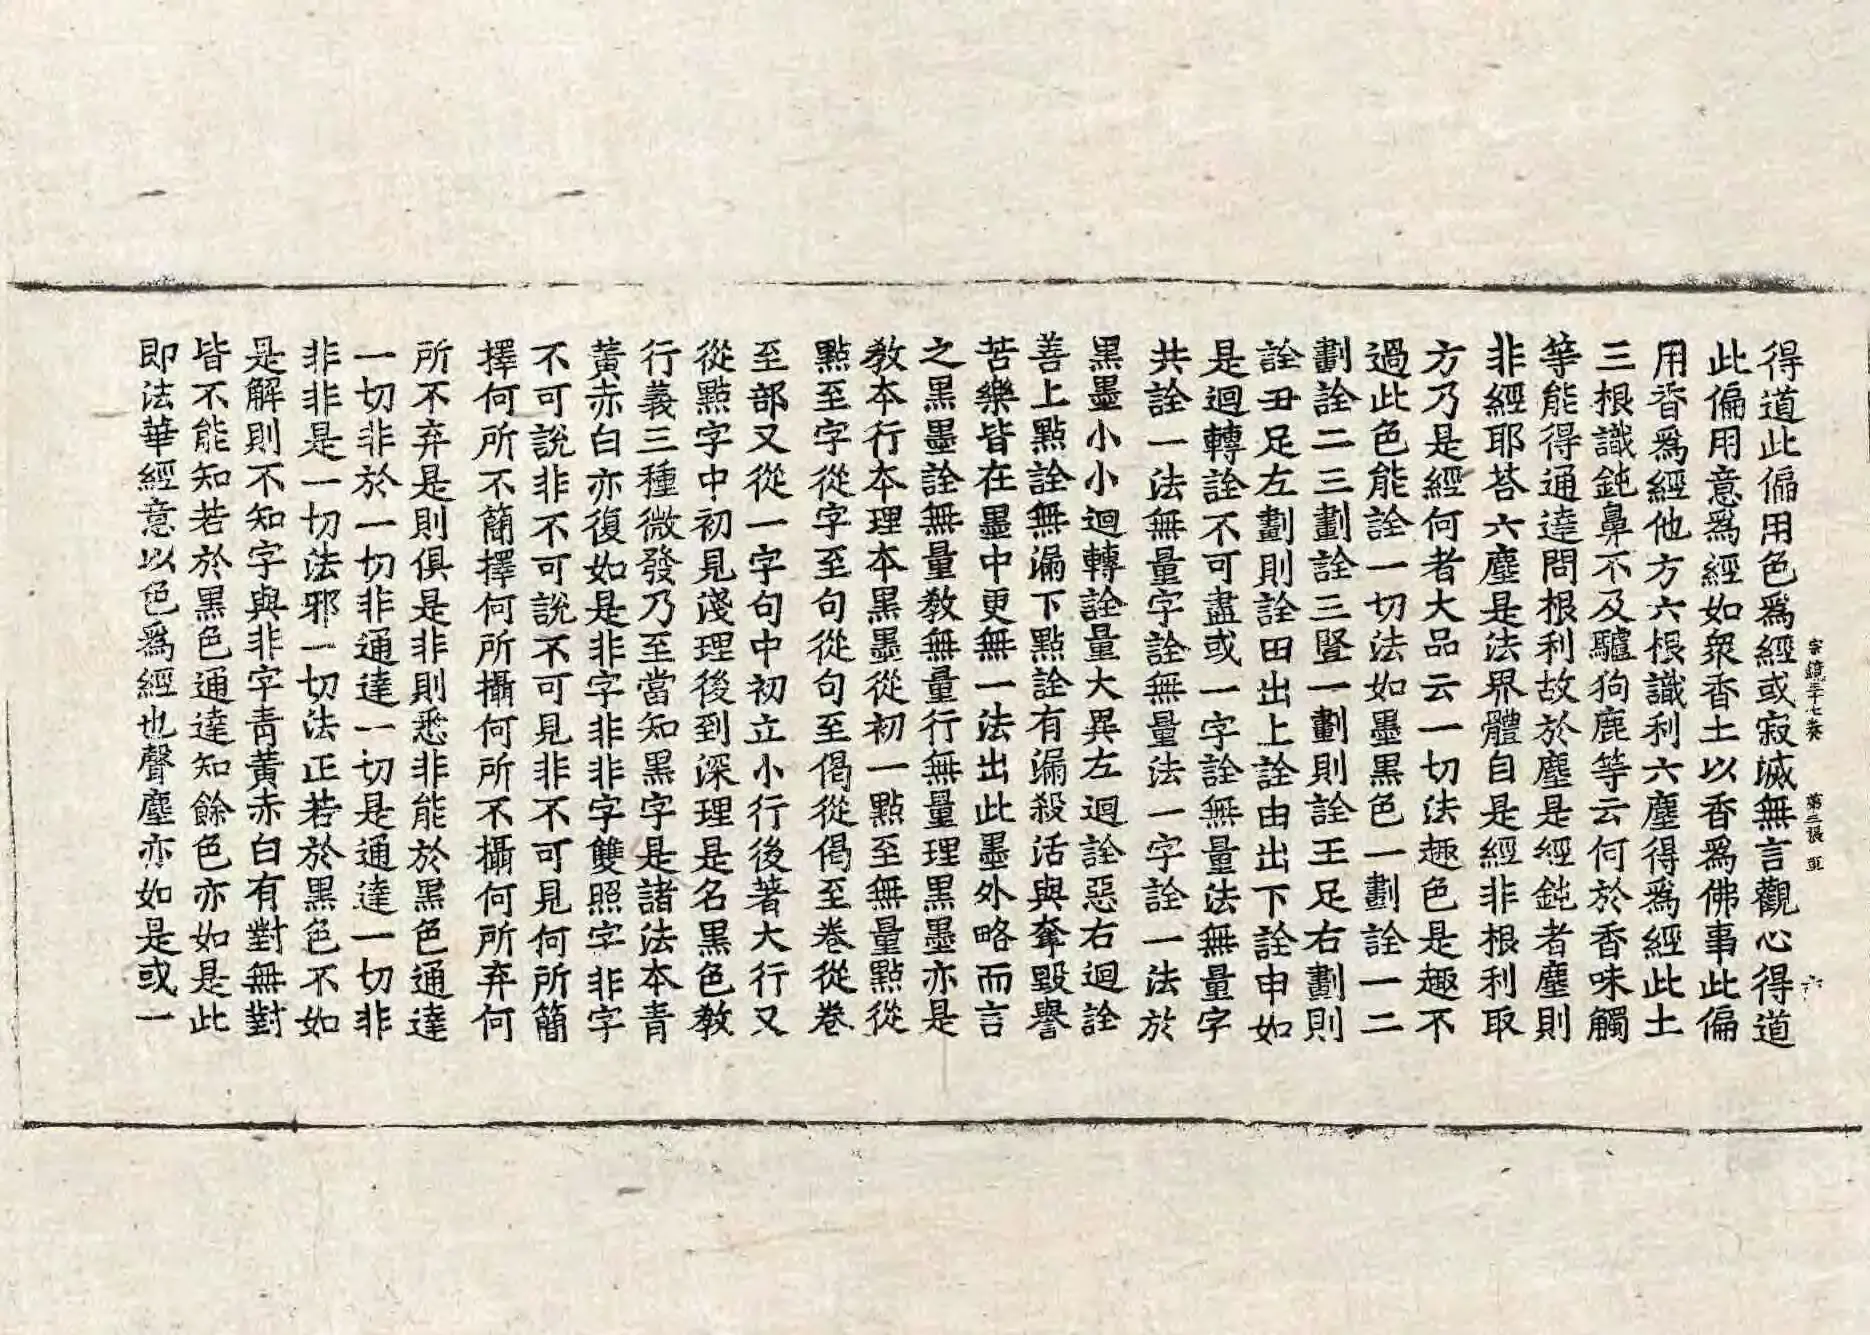 宗鏡三十七卷　第三張　亟　六
得道此偏用色爲經或寂滅無言觀心得道
此偏用意爲經如衆香土以香爲佛事此偏
用香爲經他方六根識利六塵得爲經此土
三根識鈍鼻不及驢狗鹿等云何於香味觸
等能得通達問根利故於塵是經鈍者塵則
非經耶荅六塵是法界體自是經非根利取
方乃是經何者大品云一切法趣色是趣不
過此色能詮一切法如墨黑色一劃詮一二
劃詮二三劃詮三豎一劃則詮王足右劃則
詮丑足左劃則詮田出上詮由出下詮申如
是迴轉詮不可盡或一字詮無量法無量字
共詮一法無量字詮無量法一字詮一法於
黒墨小小迴轉詮量大異左迴詮惡右迴詮
善上點詮無漏下點詮有漏殺活與奪毀譽
苦樂皆在墨中更無一法出此墨外略而言
之黒墨詮無量教無量行無量理黒墨亦是
教本行本理本黒墨從初一點至無量點從
點至字從字至句從句至偈從偈至卷從卷
至部又從一字句中初立小行後著大行又
從點字中初見淺理後到深理是名黒色教
行義三種微發乃至當知黒字是諸法本青
黃赤白亦復如是非字非非字雙照字非字
不可說非不可說不可見非不可見何所簡
擇何所不簡擇何所攝何所不攝何所弃何
所不弃是則俱是非則悉非能於黒色通達
一切非於一切非通達一切是通達一切非
非非是一切法邪一切法正若於黒色不如
是解則不知字與非字青黃赤白有對無對
皆不能知若於黒色通達知餘色亦如是此
即法華經意以色爲經也聲塵亦如是或一